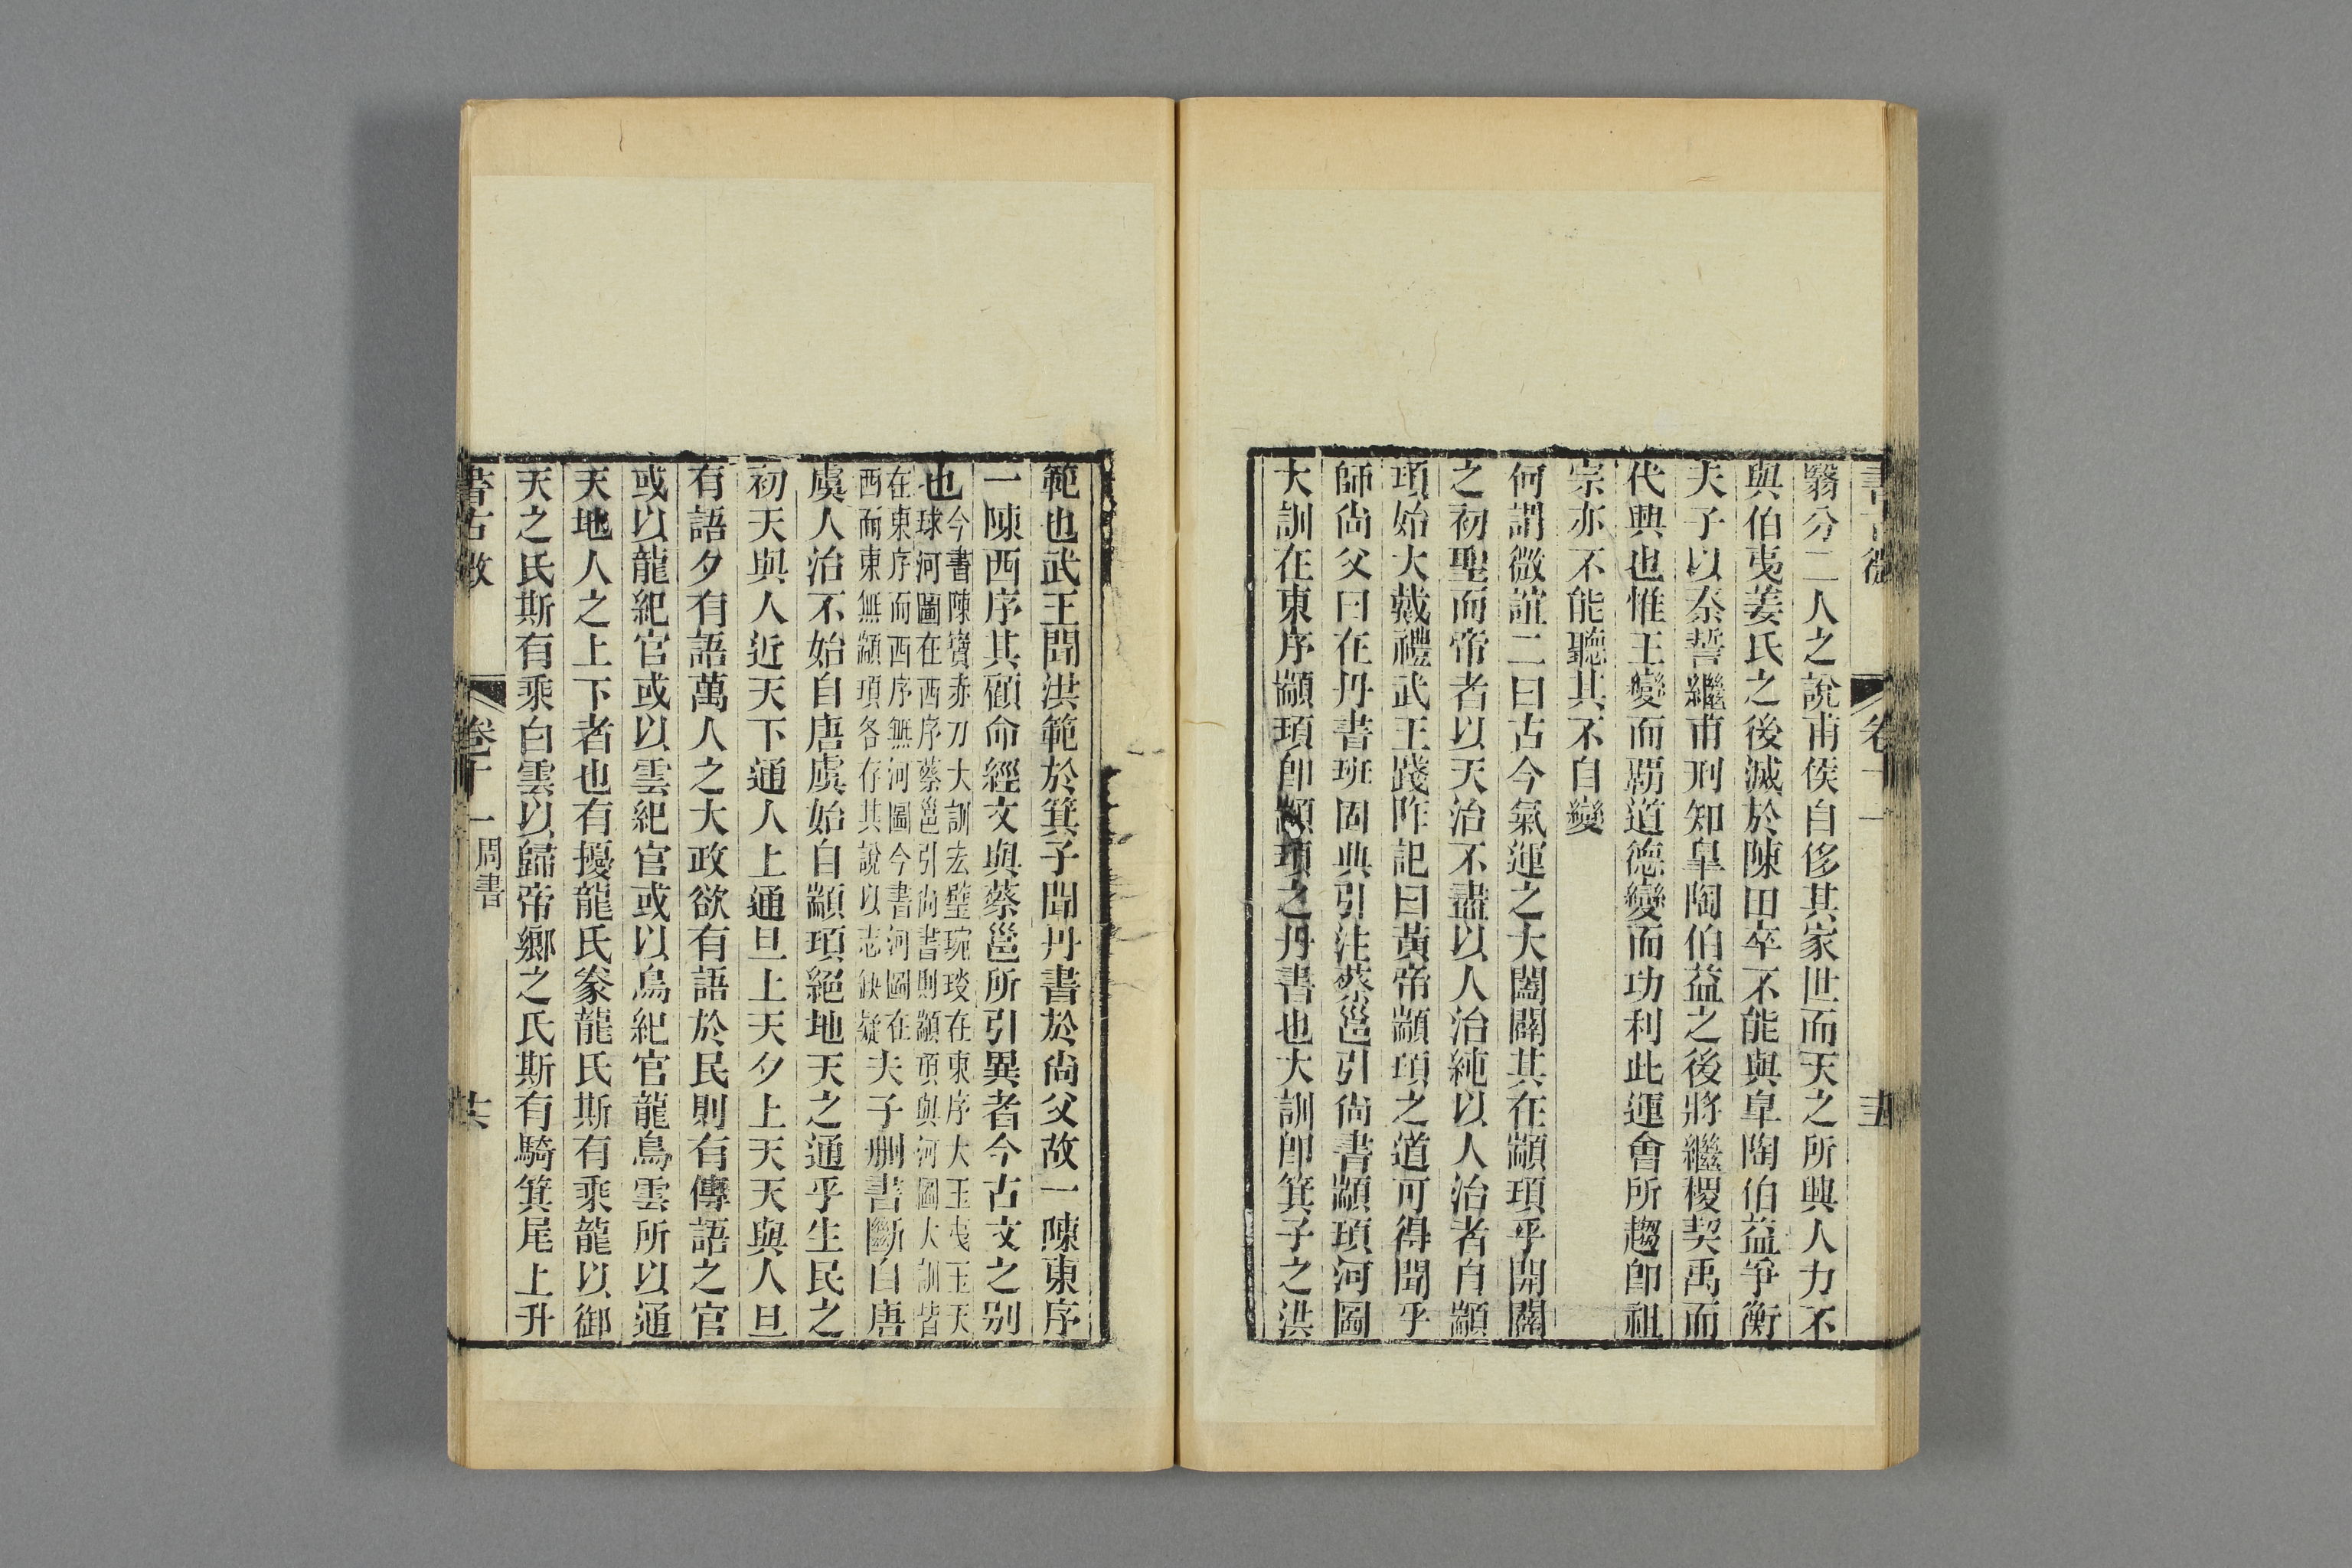 書古微
卷十一
五
翳分二人之說甫侯自侈其家世而天之所興人力不
與伯夷姜氏之後滅於陳田卒不能與臯陶伯益爭衡
夫子以秦誓繼甫刑知臯陶伯益之後將繼稷契禹而
代興也惟王變而覇道德變而功利此運會所趨卽祖
宗亦不能聽其不自變
何謂微誼二曰古今氣運之大闔闢其在顓頊乎開闢
之初聖而帝者以天治不盡以人治純以人治者自顓
頊始大戴禮武王踐阼記曰黃帝顓頊之道可得聞乎
師尙父曰在丹書班固典引注蔡邕引尙書顓頊河圖
大訓在東序顓頊卽顓頊之丹書也大訓卽箕子之洪
範也武王聞洪範於箕子聞丹書於尙父故一陳東序
一陳西序其顧命經文與蔡邕所引異者今古文之别
也今書陳寶赤刀大訓宏璧琬琰在東序大玉夷玉天
球河圖在西序蔡邕引尙書則顓頊與河圖大訓皆
在東序而西序無河圖今書河圖在
西而東無顓頊各存其說以志缺疑夫子刪書斷自唐
虞人治不始自唐虞始自顓頊絕地天之通乎生民之
初天與人近天下通人上通旦上天夕上天天與人旦
有語夕有語萬人之大政欲有語於民則有傳語之官
或以龍紀官或以雲紀官或以鳥紀官龍鳥雲所以通
天地人之上下者也有擾龍氏豢龍氏斯有乘龍以御
天之氏斯有乘白雲以歸帝鄉之氏斯有騎箕尾上升
書古微
卷十一
周書
共